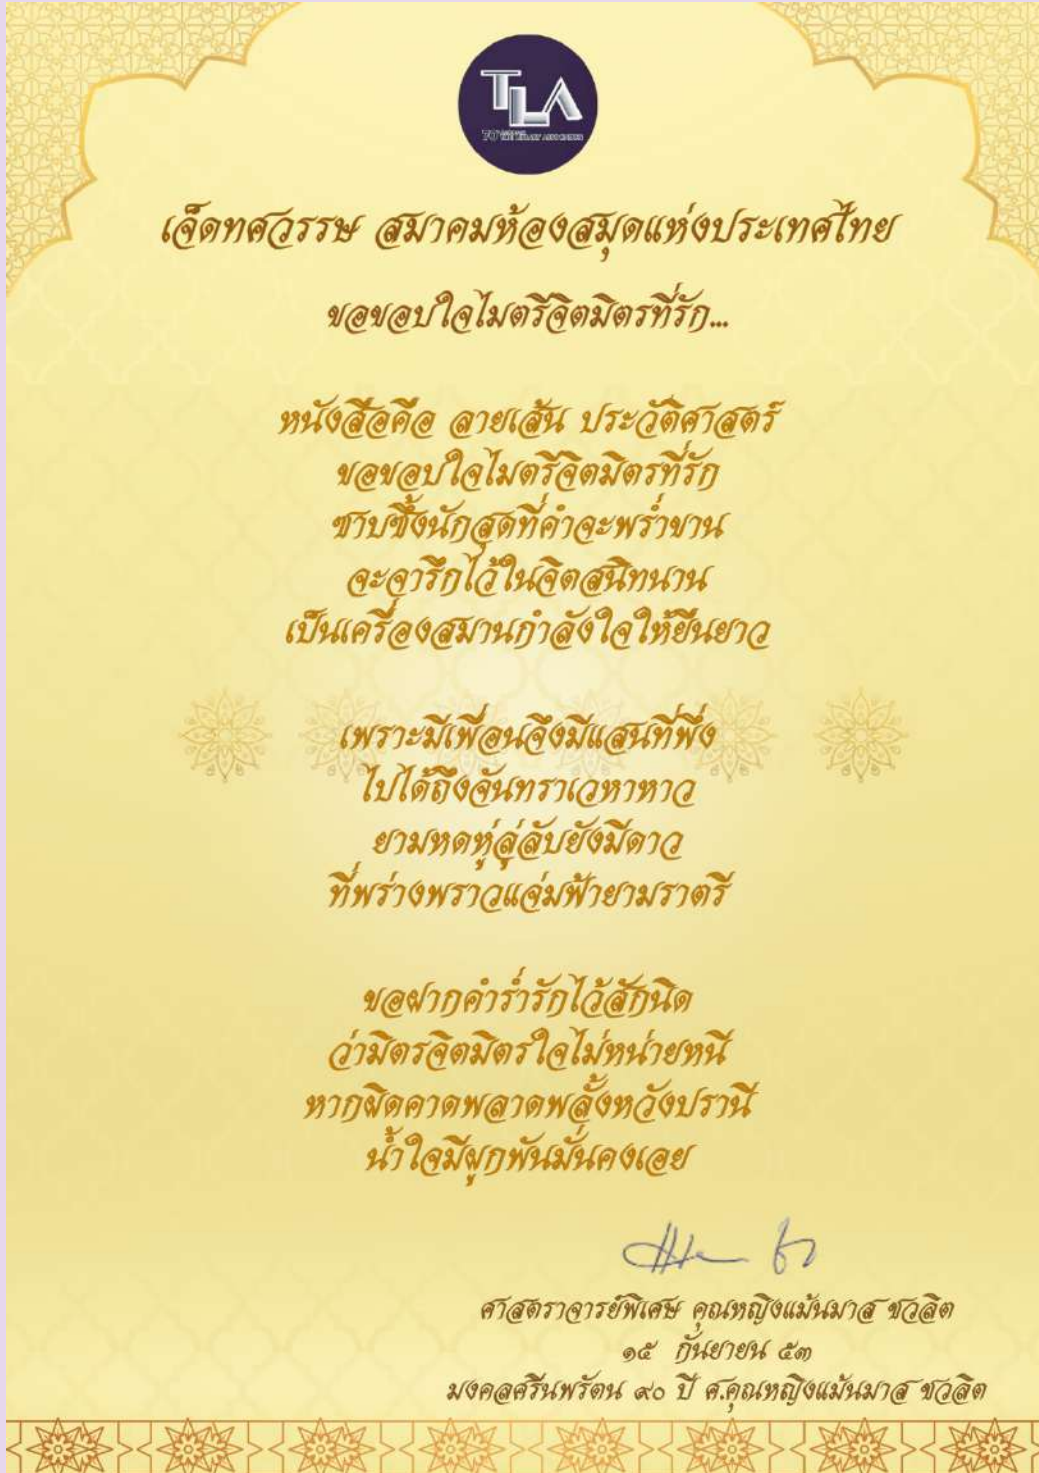 TLA
เจ็ดทศวรรษ สมาคมห้องสมุดแห่งประเทศไทย
ขอขอบใจไมตรีจิตมิตรที่รัก...
หนังสือคือ ลายเส้น ประวัติศาสตร์
ขอขอบใจไมตรีจิตมิตรที่รัก
ซาบซึ้งนักสุดที่คำจะพร่ำขาน
จะจารึกไว้ในจิตสนิทนาน
เป็นเครื่องสมานกำลังใจให้ยืนยาว
เพราะมีเพื่อนจึงมีแสนที่พึ่ง
ไปได้ถึงจันทราเวหาหาว
ยามหดหู่ลู่ลับยังมีดาว
ที่พร่างพราวแจ่มฟ้ายามราตรี
ขอฝากคำร่ำรักไว้สักนิด
ว่ามิตรจิตมิตรใจไม่หน่ายหนี
หากผิดคาดพลาดพลั้งหวังปรานี
น้ำใจมีผูกพันมั่นคงเอย
ศาสตราจารย์พิเศษ คุณหญิงแม้นมาส ชวลิต
๑๕ กันยายน ๕๓
มงคลศรีนพรัตน ๙๐ ปี ศ.คุณหญิงแม้นมาส ชวลิต